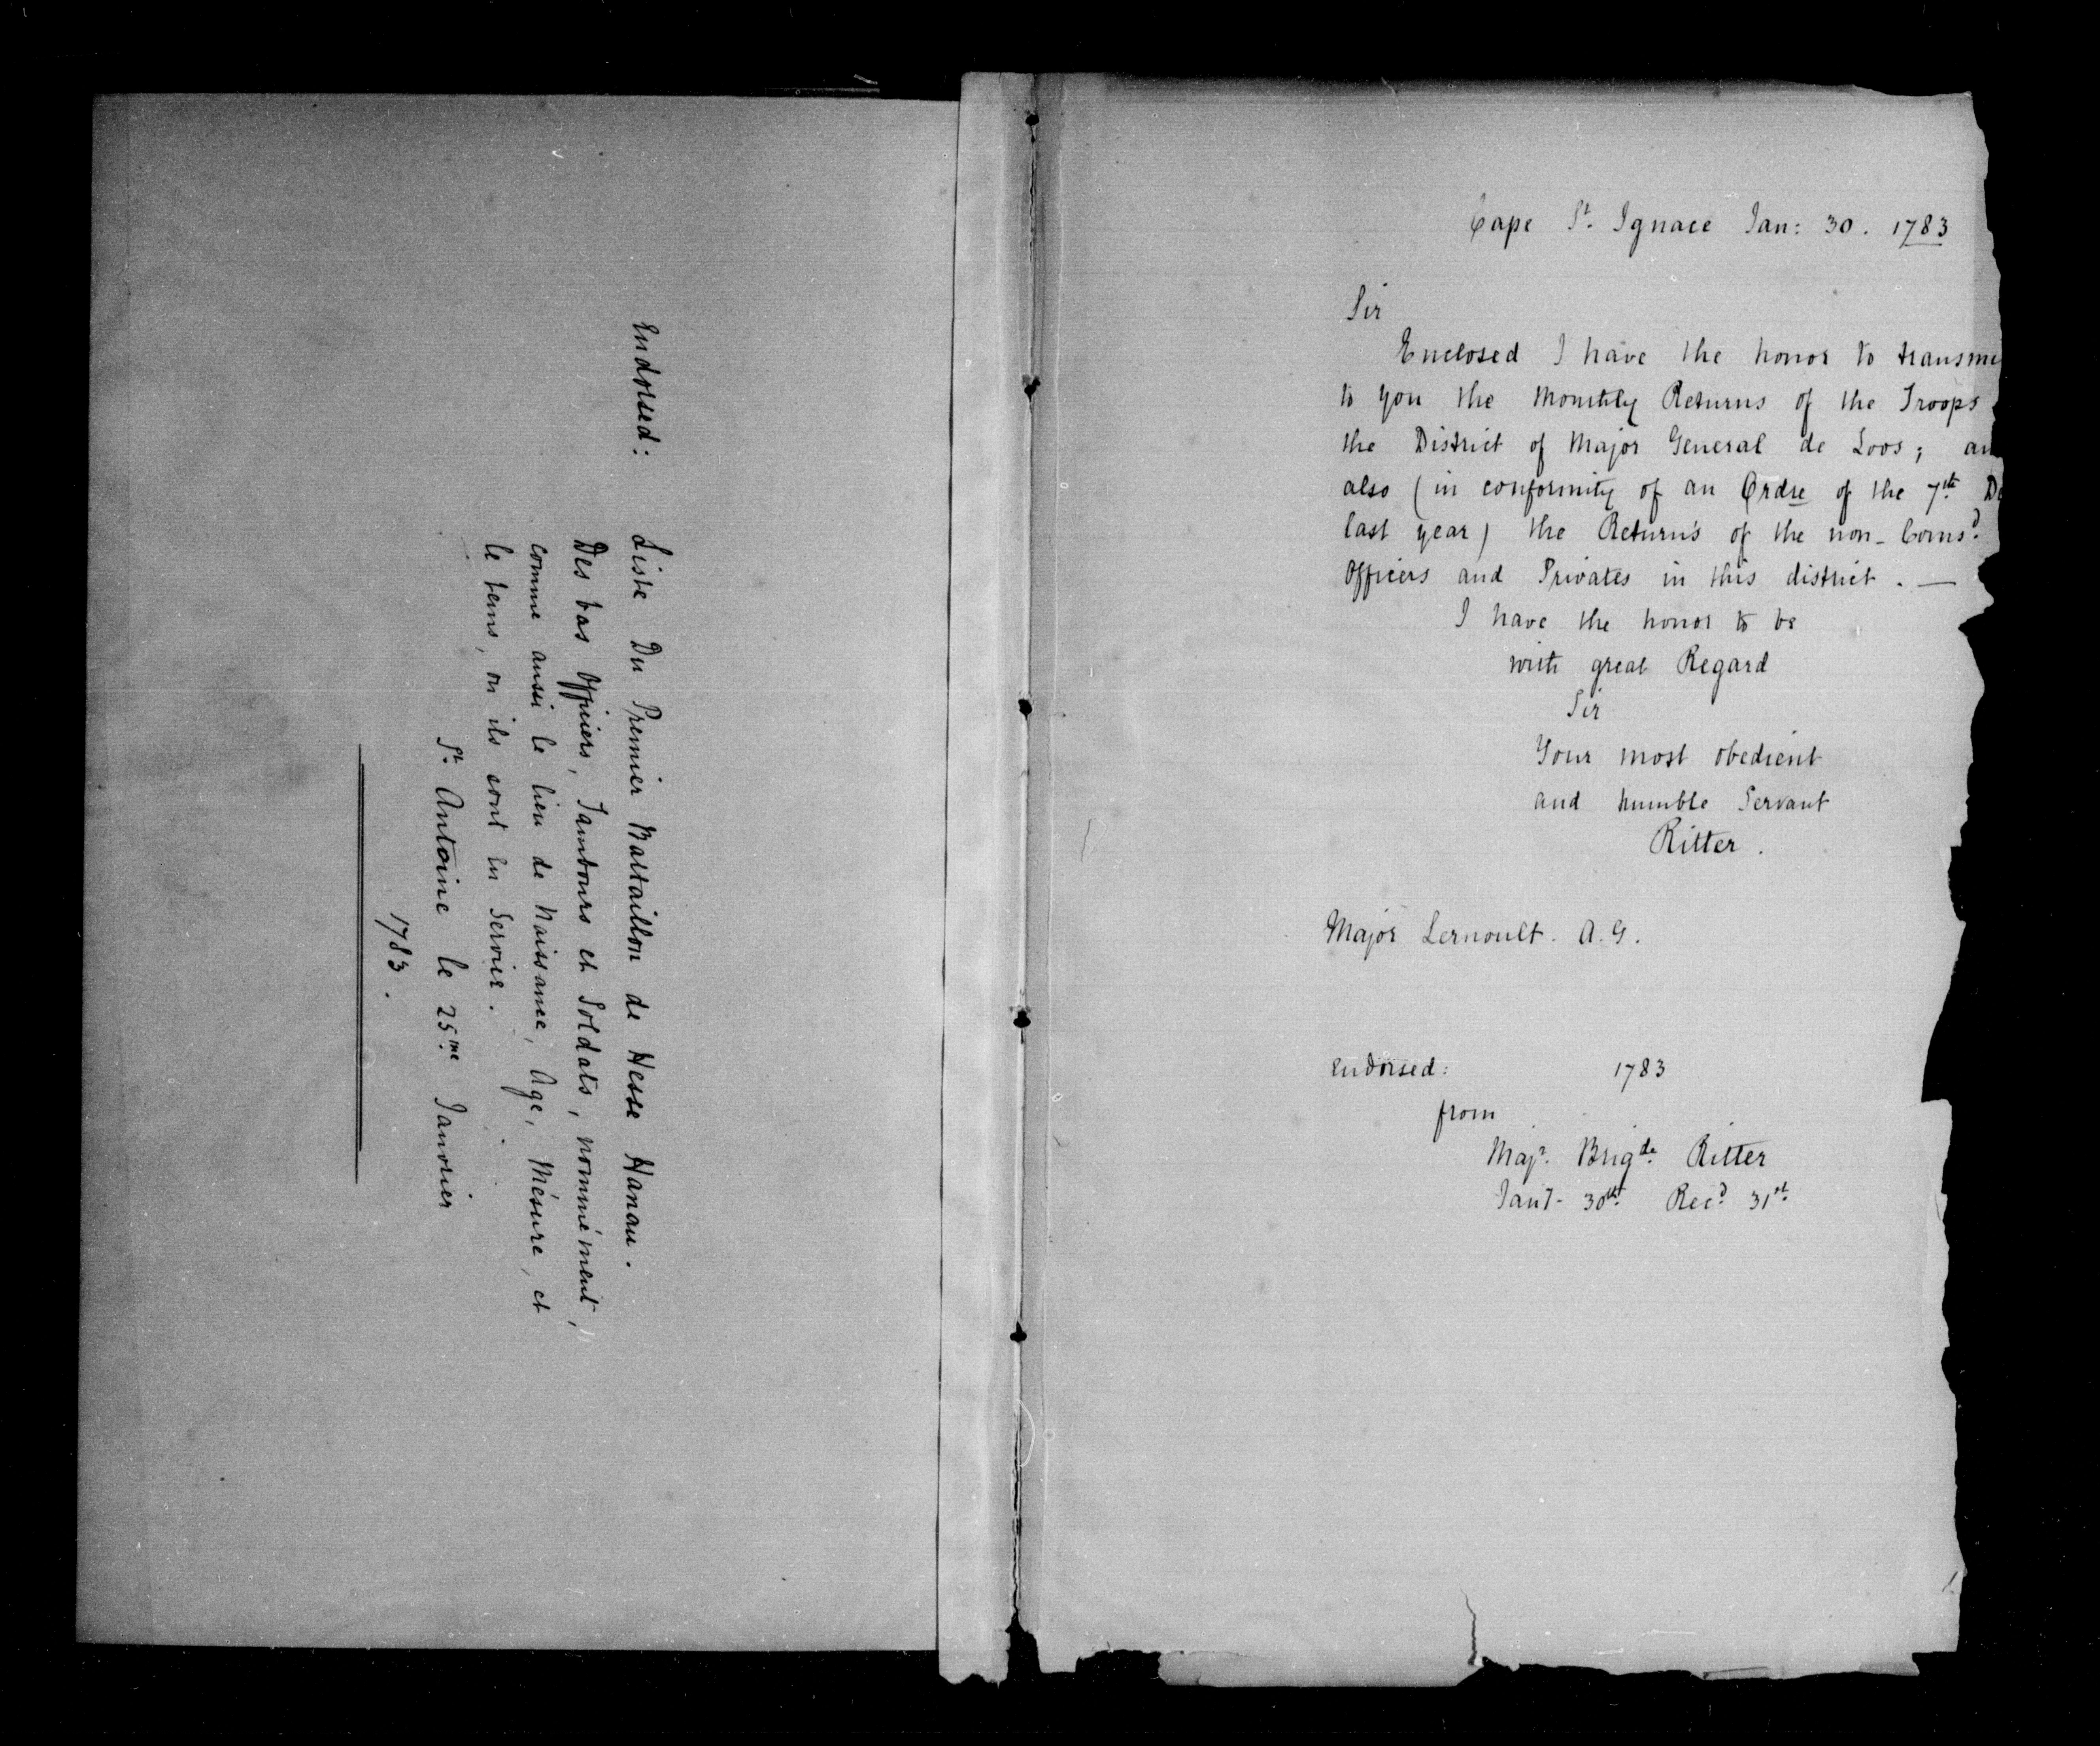 Endorsed: Liste Du Premier Battaillon de Hesse Hanau.
Des bas Officiers, Tambours et Soldats, nommément,
comme aussi le lieu de Naissance, Age, Mésure, et
le tems, où ils sont en Service.
St. Antoine le 25me. Janvier
1783.
Cape St. Ignace Jan: 30. 1783
Sir
Enclosed I have the honor to transm
to you the Monthly Returns of the Troops
the District of Major General de Loos; an
also (in conformity of an Ordre of the 7th. De
last year) the Returns of the non-Coms.d
Officers and Privates in this district. —
I have the honor to be
with great Regard
Sir
Your most obedient
and humble Servant
Ritter.
Major Lernoult. A.G.
Endorsed: 1783
from
Majr. Brigde. Ritter
30th. Recd. 31st.